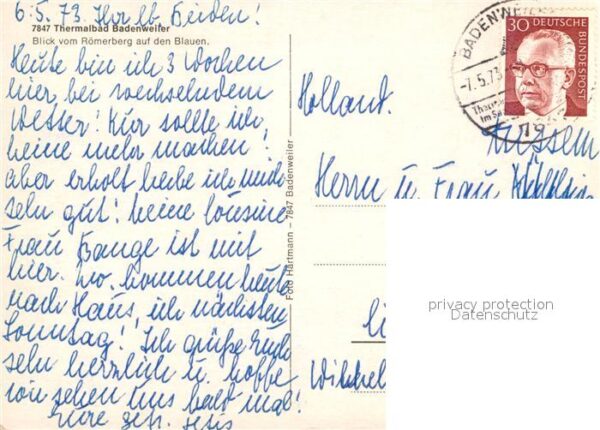 6.5.73. Ihr lb. Beiden!
7847 Thermalbad Badenweiler
Blick vom Römerberg auf den Blauen.
Heute bin ich 3 Wochen
hier, bei wechselndem
Wetter! Kur sollte ich
keine mehr machen!
Aber erholt habe ich mich
sehr gut! Meine Cousine
Frau Bange ist mit
hier. Wo. kommen heute
nach Haus, ich nächsten
Sonntag! Ich grüße Euch
sehr herzlich u. hoffe
wir sehen uns bald mal!
Eure
Foto Hartmann – 7847 Badenweiler
BADENWEILER
-7.5.73
30 DEUTSCHE
BUNDESPOST
Holland.
Herrn u. Frau
privacy protection
Datenschutz